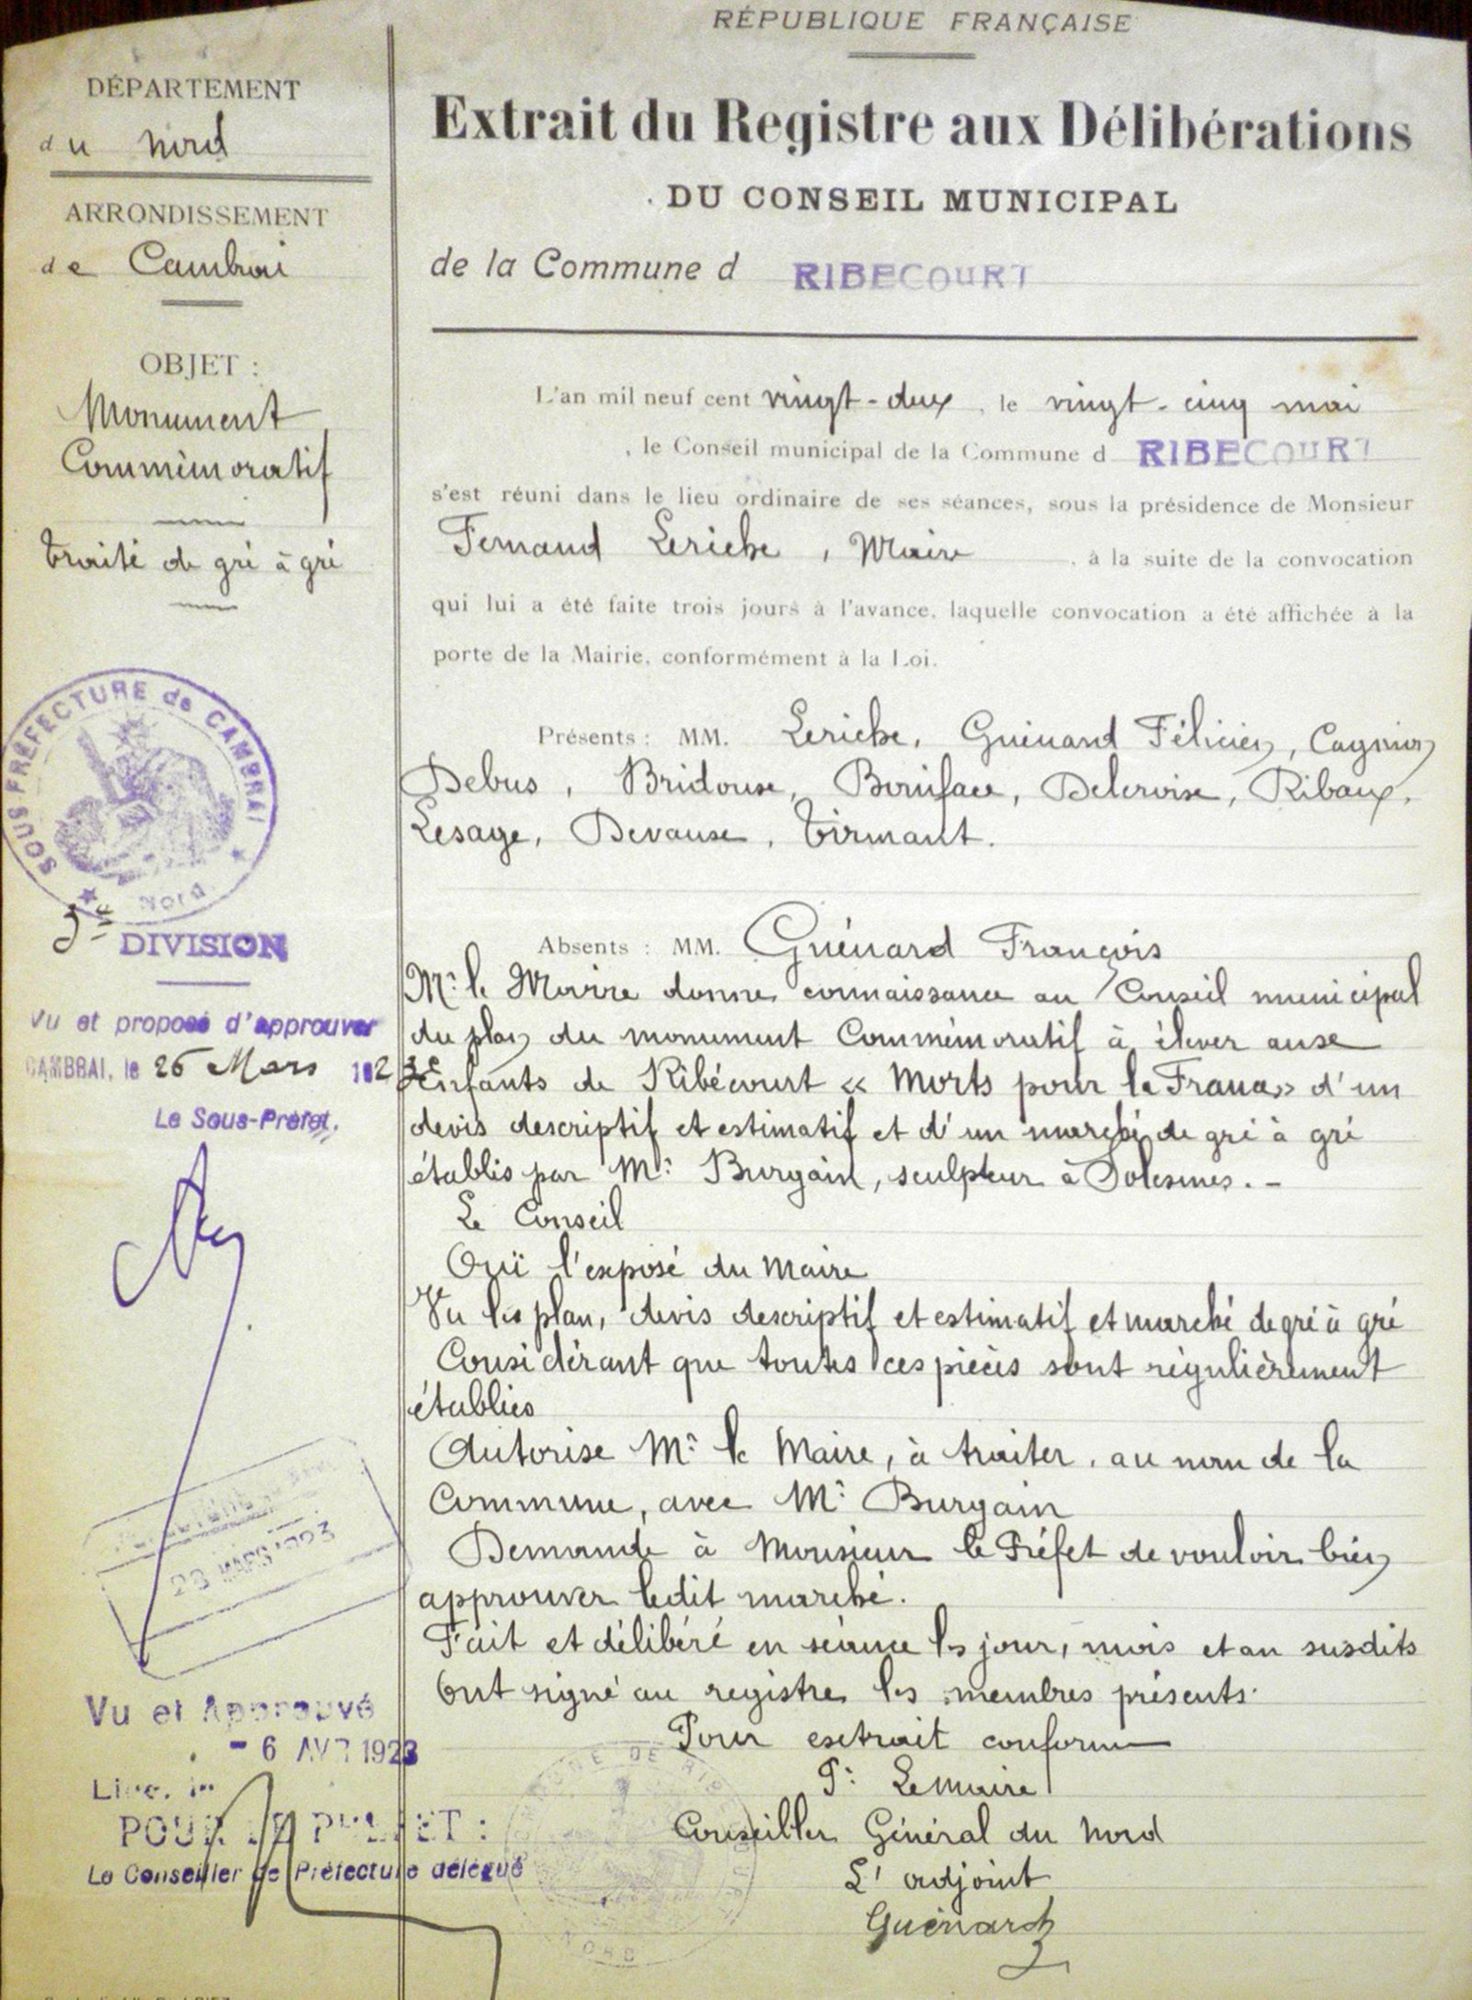 RÉPUBLIQUE FRANÇAISE
DÉPARTEMENT
du Nord
ARRONDISSEMENT
de Cambrai
OBJET :
Monument
Commémoratif
traité de gré à gré
SOUS PRÉFECTURE de CAMBRAI
Nord
3e DIVISION
Vu et proposé d'approuver
CAMBRAI, le 26 Mars 1923
Le Sous-Préfet,
23 MARS 1923
Vu et Approuvé
- 6 AVR 1923
POUR LE PRÉFET :
Le Conseiller de Préfecture délégué
Extrait du Registre aux Délibérations
DU CONSEIL MUNICIPAL
de la Commune d RIBECOURT
L'an mil neuf cent vingt-deux, le vingt-cinq mai
, le Conseil municipal de la Commune d RIBECOURT
s'est réuni dans le lieu ordinaire de ses séances, sous la présidence de Monsieur
Fernand Leriche, Maire, à la suite de la convocation
qui lui a été faite trois jours à l'avance, laquelle convocation a été affichée à la
porte de la Mairie, conformément à la Loi.
Présents : MM. Leriche, Guénard Félicien, Cagnion
Debus, Bridoux, Boniface, Delervise, Ribaux,
Lesage, Devaux, Tirmant.
Absents : MM. Guénard François
Mr le Maire donne connaissance au Conseil municipal
du plan du monument Commémoratif à élever aux
Enfants de Ribécourt « Morts pour la France » d'un
devis descriptif et estimatif et d'un marché de gré à gré
établis par Mr Burgain, sculpteur à Solesmes. -
Le Conseil
Ouï l'exposé du Maire
Vu les plan, devis descriptif et estimatif et marché de gré à gré
Considérant que toutes ces pièces sont régulièrement
établies
Autorise Mr le Maire, à traiter, au nom de la
Commune, avec Mr Burgain
Demande à Monsieur le Préfet de vouloir bien
approuver ledit marché.
Fait et délibéré en séance les jour, mois et an susdits
Ont signé au registre les membres présents.
Pour extrait conforme
Pr Le Maire
Conseiller Général du Nord
L'adjoint
Guénard